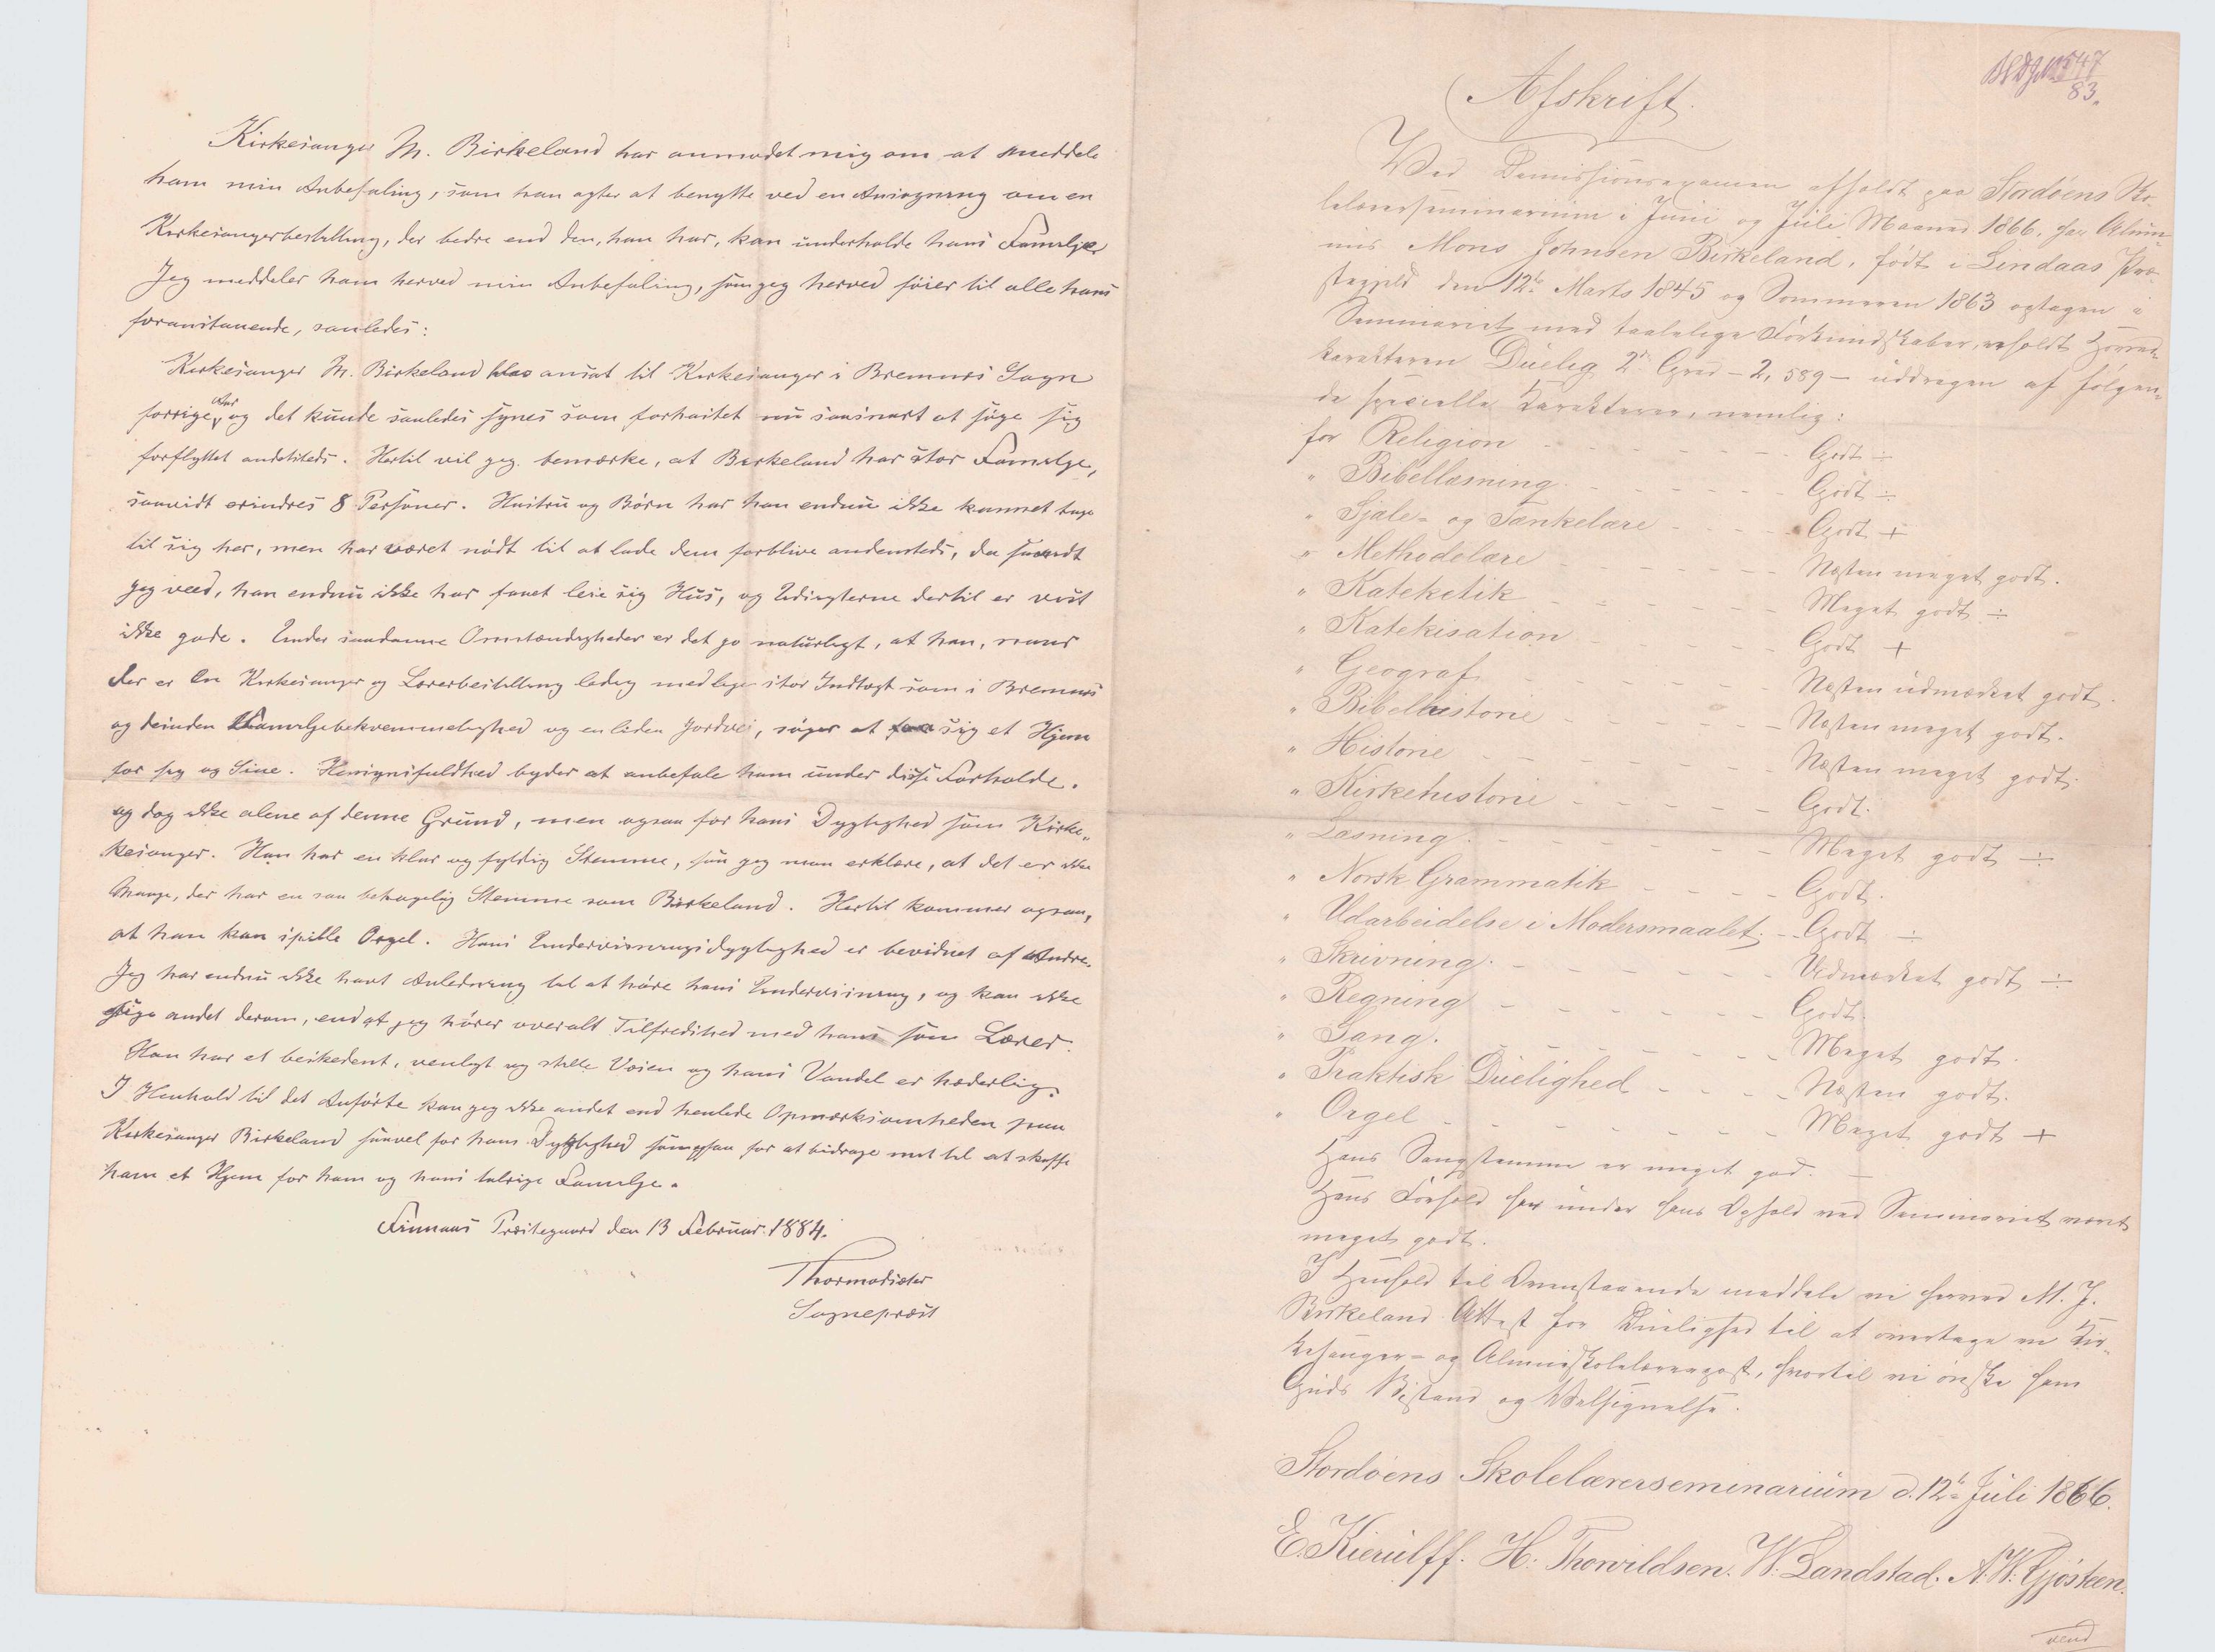 Kirkesanger M. Birkeland har anmodet mig om at meddele
ham min Anbefaling, som han agter at benytte ved en Ansøgning om en
Kirkesangerbestilling, der bedre end den, han har, kan underholde hans Familje.
Jeg meddeler ham herved min Anbefaling, som jeg herved föier til alle hans
foranstaaende, saaledes:
Kirkesanger M. Birkeland blev ansat til Kirkesanger i Bremnes Sogn
forrige Aar, og det kunde saaledes synes som forhastet nu saasnart at söge sig
forflyttet andetsteds. Hertil vil jeg bemærke, at Birkeland har stor Familje,
saavidt erindres 8 Personer. Hustru og Börn har han endnu ikke kunnet tage
til sig her, men har været nödt til at lade dem forblive andensteds, da saavidt
jeg veed, han endnu ikke har faaet leie sig Hus, og Udsigterne dertil er vist
ikke gode. Under saadanne Omstændigheder er det jo naturligt, at han, naar
der er en Kirkesanger og Lærerbestilling ledig med lige stor Indtægt som i Bremnes
og desuden Familjebekvemmelighed og en liden Jordvei, söger at faa sig et Hjem
for sig og Sine. Hensynsfuldhed byder at anbefale ham under disse Forholde.
og dog ikke alene af denne Grund, men ogsaa for hans Dygtighed som Kirke„
kesanger. Han har en klar og fyldig Stemme, saa jeg maa erklære, at det er ikke
Mange, der har en saa behagelig Stemme som Birkeland. Hertil kommer ogsaa,
at han kan spille Orgel. Hans Undervisningsdygtighed er bevidnet af Andre.
Jeg har endnu ikke havt Anledning til at höre hans Undervisning, og kan ikke
sige andet derom, end at jeg hörer overalt Tilfredshed med ham som Lærer.
Han har et beskedent, venligt og stille Væsen og hans Vandel er hæderlig.
I Henhold til det Anförte kan jeg ikke andet end henlede Opmærksomheden paa
Kirkesanger Birkeland saavel for hans Dygtighed som ogsaa for at bidrage mit til at skaffe
ham et Hjem for ham og hans talrige Familje.
Finnaas Præstegaard den 13 Februar 1884.
Thormodsæter
Sogneprest
547
83.
Afskrift.
Ved Demissionsexamen afholdt paa Stordöens Sko„
lelærerseminarium i Juni og Juli Maaned 1866, har Alum„
nus Mons Johnsen Birkeland, född i Lindaas Præ„
stegjeld den 12te Marts 1845 og Sommeren 1863 optagen i
Seminariet med taalelige Forkundskaber, erholdt Hoved„
karakteren Duelig 2den Grad – 2,589 – uddragen af fölgen„
de specielle Karakterer, nemlig:
for Religion - - - - - - Godt ÷
„ Bibellæsning - - - - - - Godt ÷
„ Sjæle- og Tankelære - - - - Godt +
„ Methodelære - - - - - - Næsten meget godt.
„ Kateketik - - - - - - Meget godt ÷
„ Katekisation - - - - - Godt +
„ Geografi - - - - - - Næsten udmærket godt.
„ Bibelhistorie - - - - - - Næsten meget godt.
„ Historie - - - - - - - Næsten meget godt.
„ Kirkehistorie - - - - - - Godt.
„ Læsning. - - - - - - - Meget godt ÷
„ Norsk Grammatik - - - - Godt.
„ Udarbeidelse i Modersmaalet. - Godt ÷
„ Skrivning. - - - - - - Udmærket godt ÷
„ Regning - - - - - - - Godt.
„ Sang. - - - - - - - Meget godt.
„ Praktisk Duelighed - - - - Næsten godt.
„ Orgel - - - - - - - Meget godt +
Hans Sangstemme er meget god. –
Hans Forhold har under hans Ophold ved Seminariet været
meget godt.
I Henhold til Ovenstaaende meddele vi herved M. J.
Birkeland Attest for Duelighed til at overtage en Kir„
kesanger- og Almueskolelærerpost, hvortil vi önske ham
Guds Bistand og Velsignelse.
Stordöens Skolelærerseminarium d. 12te Juli 1866.
E. Kierulff. H. Thorvildsen. W. Landstad. A. W. Gjösteen.
vend